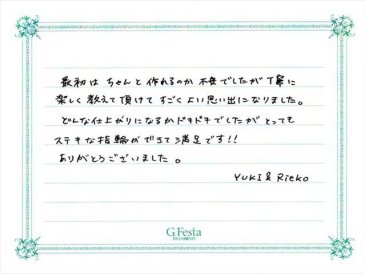 最初は ちゃんと作れるのか 不安でしたが 丁寧に
楽しく教えて頂けて すごくよい思い出になりました。
どんな仕上がりになるか ドキドキでしたが とっても
ステキな指輪ができて 満足です!!
ありがとうございました。
YUKI & Rieko
G.Festa
DIAMOND